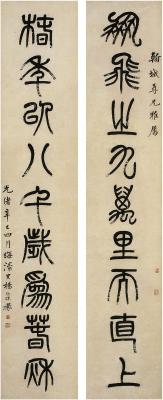 翰城尊兄雅屬
鵬飛之九萬里而直上
椿年以八千歲為春秋
光緒辛巳四月濠叟楊沂孫